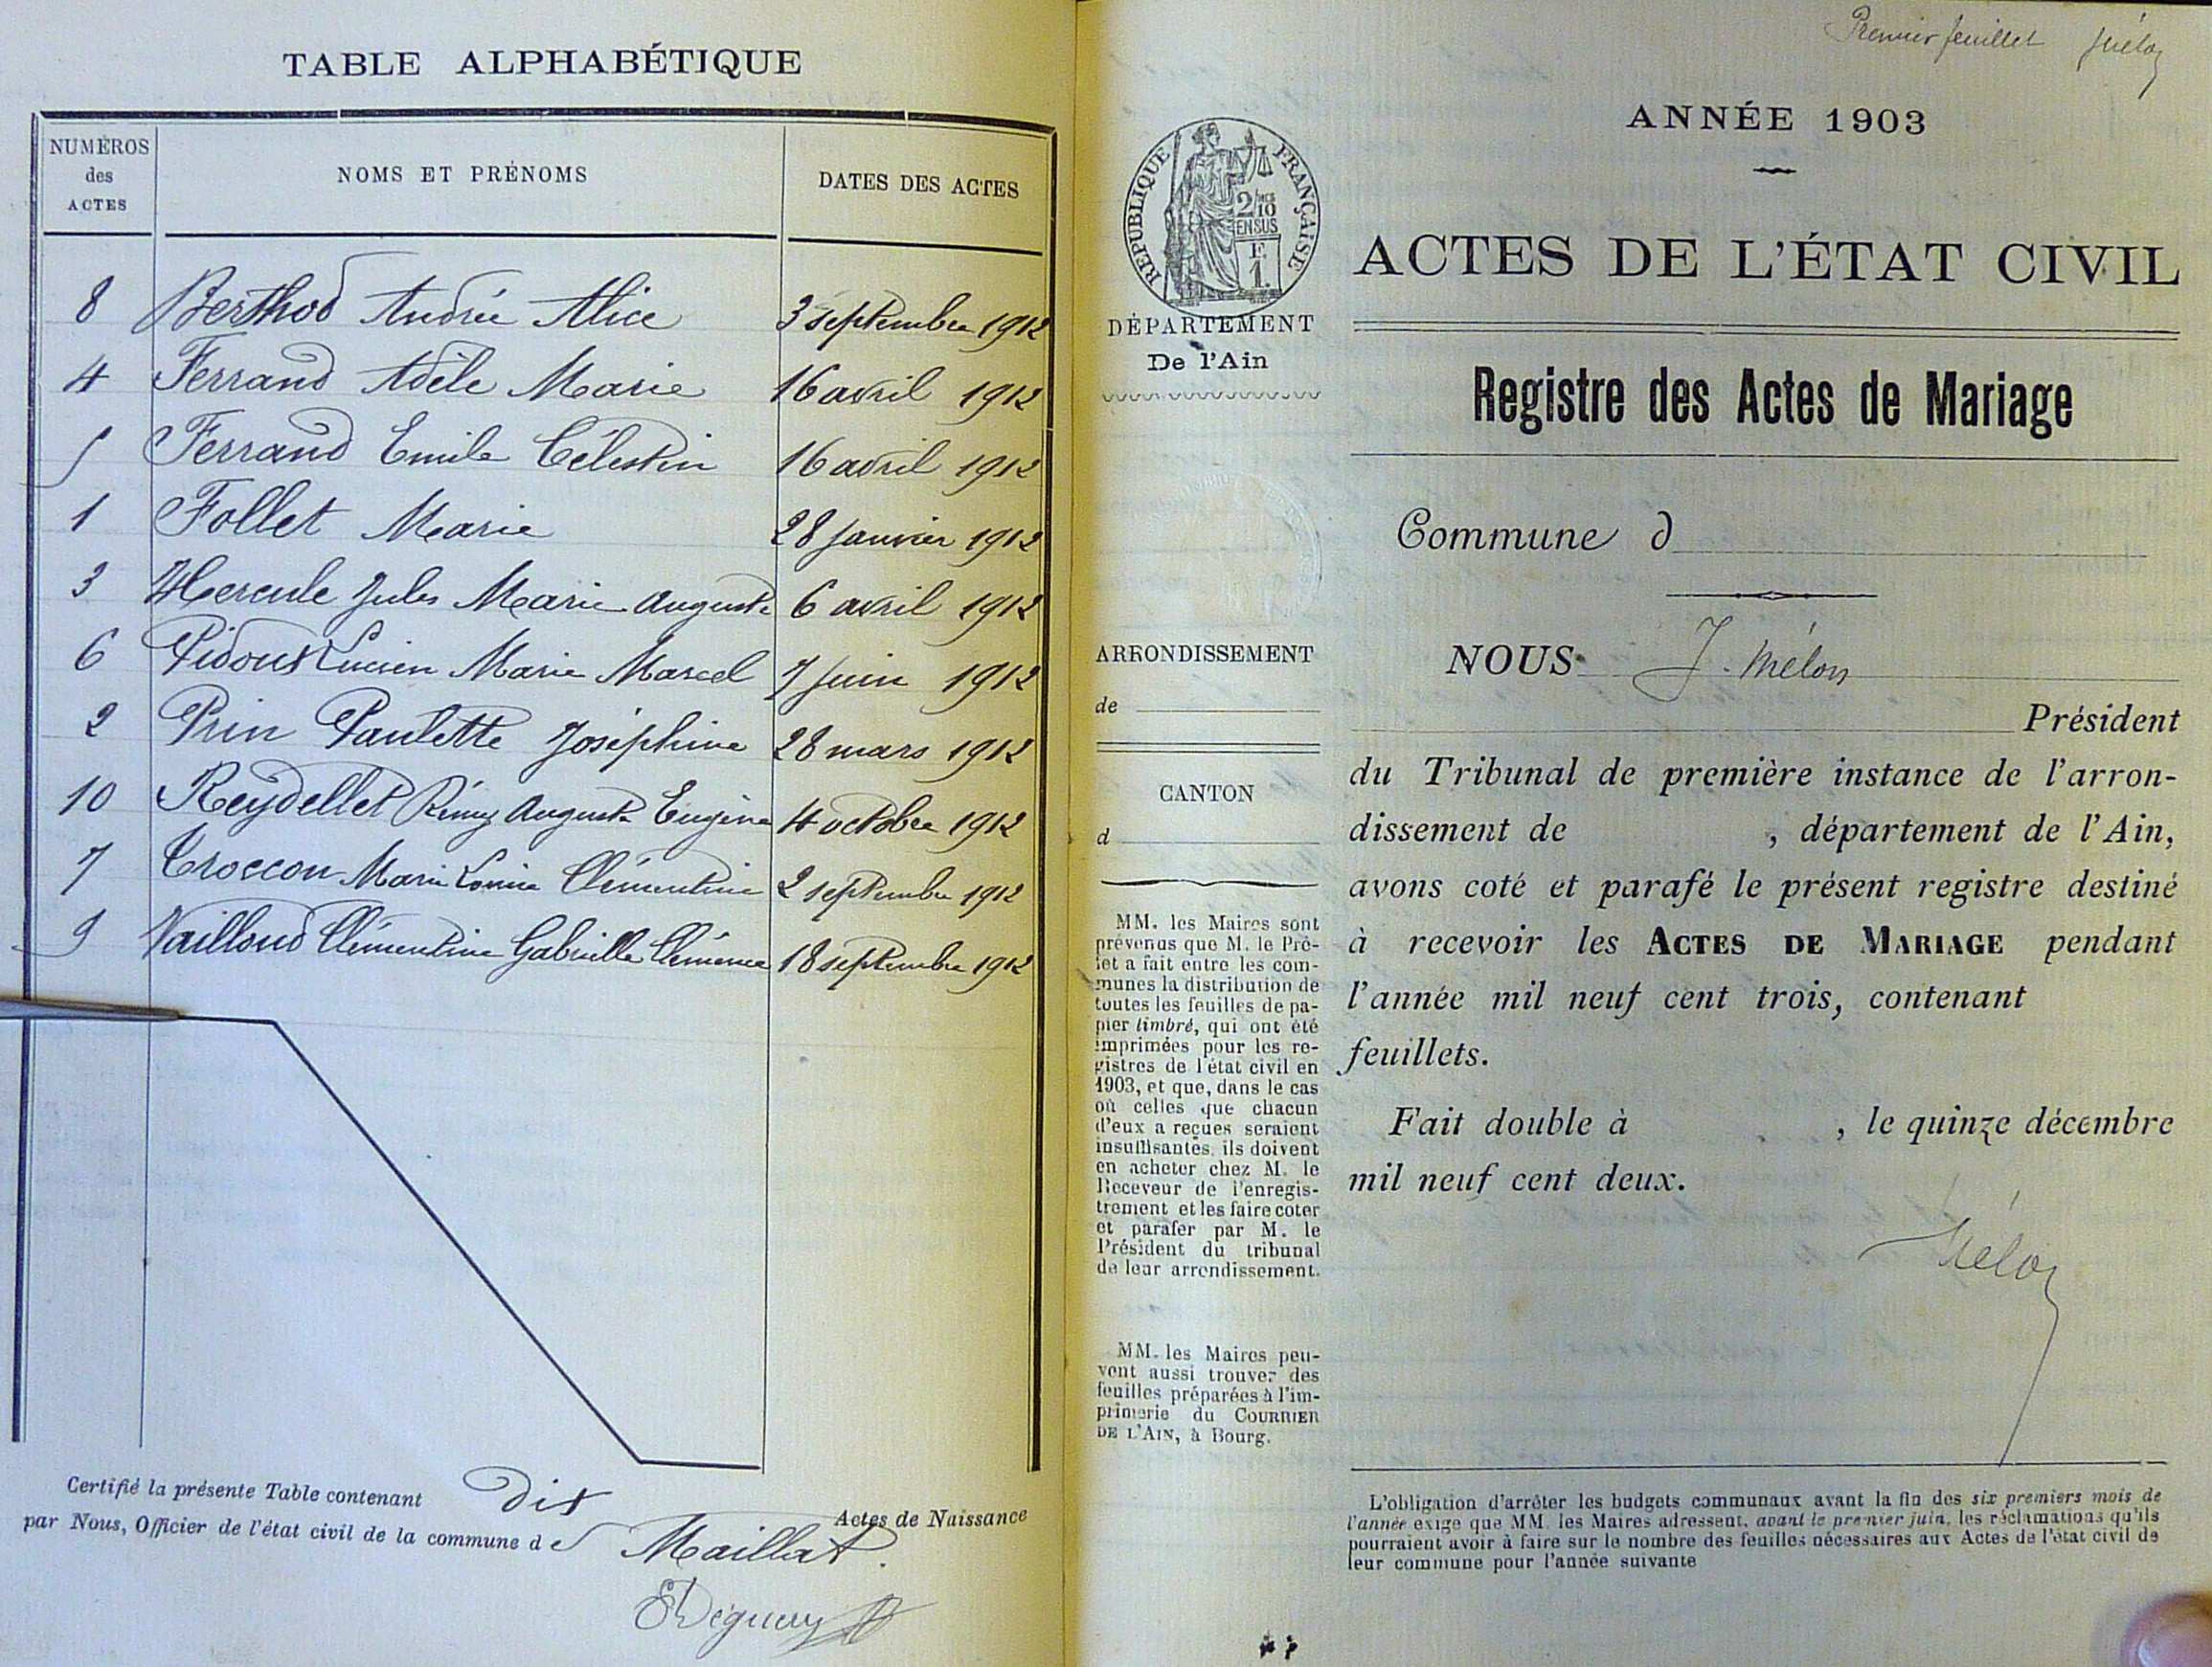 TABLE ALPHABÉTIQUE
NUMÉROS
des
ACTES
NOMS ET PRÉNOMS
DATES DES ACTES
8 Berthod Andrée Alice 3 septembre 1912
4 Ferrand Adèle Marie 16 avril 1912
5 Ferrand Emile Célestin 16 avril 1912
1 Follet Marie 28 janvier 1912
3 Hercule Jules Marie Auguste 6 avril 1912
6 Pidoux Lucien Marie Marcel 7 juin 1912
2 Prin Paulette Joséphine 28 mars 1912
10 Reydellet Rémy Auguste Eugène 4 octobre 1912
7 Troccon Marie Louise Clémentine 2 septembre 1912
9 Vailloud Clémentine Gabrielle Clémence 18 septembre 1912
Certifié la présente Table contenant dix Actes de Naissance
par Nous, Officier de l'état civil de la commune de Maillat.
Premier feuillet Mélon
ANNÉE 1903
RÉPUBLIQUE FRANÇAISE
2/10
EN SUS
F.
1.
ACTES DE L'ÉTAT CIVIL
DÉPARTEMENT
De l'Ain
Registre des Actes de Mariage
Commune d
ARRONDISSEMENT
de
CANTON
d
MM. les Maires sont
prévenus que M. le Pré-
fet a fait entre les com-
munes la distribution de
toutes les feuilles de pa-
pier timbré, qui ont été
imprimées pour les re-
gistres de l'état civil en
1903, et que, dans le cas
où celles que chacun
d'eux a reçues seraient
insuffisantes, ils doivent
en acheter chez M. le
Receveur de l'enregis-
trement et les faire coter
et parafer par M. le
Président du tribunal
de leur arrondissement.
MM. les Maires peu-
vent aussi trouver des
feuilles préparées à l'im-
primerie du COURRIER
DE L'AIN, à Bourg.
NOUS J. Mélon
Président
du Tribunal de première instance de l'arron-
dissement de , département de l'Ain,
avons coté et parafé le présent registre destiné
à recevoir les ACTES DE MARIAGE pendant
l'année mil neuf cent trois, contenant
feuillets.
Fait double à , le quinze décembre
mil neuf cent deux.
Mélon
L'obligation d'arrêter les budgets communaux avant la fin des six premiers mois de
l'année exige que MM. les Maires adressent, avant le premier juin, les réclamations qu'ils
pourraient avoir à faire sur le nombre des feuilles nécessaires aux Actes de l'état civil de
leur commune pour l'année suivante